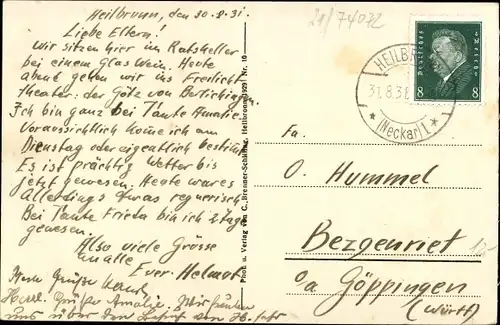 Heilbronn, den 30.8.31.
Liebe Eltern!
Wir sitzen hier im Ratskeller
bei einem Glas Wein. Heute
abend gehen wir ins Freilicht
theater: der Götz von Berlichingen.
Ich bin ganz bei Tante Amalie.
Voraussichtlich komme ich am
Dienstag oder eigentlich bestimmt
Es ist prächtig Wetter bis
jetzt gewesen. Heute war es
allerdings etwas regnerisch
Bei Tante Frieda bin ich 2 Tage
gewesen.
Also viele Grüsse
an alle
Euer Helmut.
Grüße
Herzl. Grüße Amalie. Wir freuen
uns über den Besuch von
Phot. u. Verlag von C. Brenner-Schilling, Heilbronn 1929 Nr. 10
28/74072
Deutsches Reich
8 8
HEILBRONN
31.8.31
* (Neckar) 1 *
Fa.
O. Hummel
Bezgenriet
o/a Göppingen
(Württ)